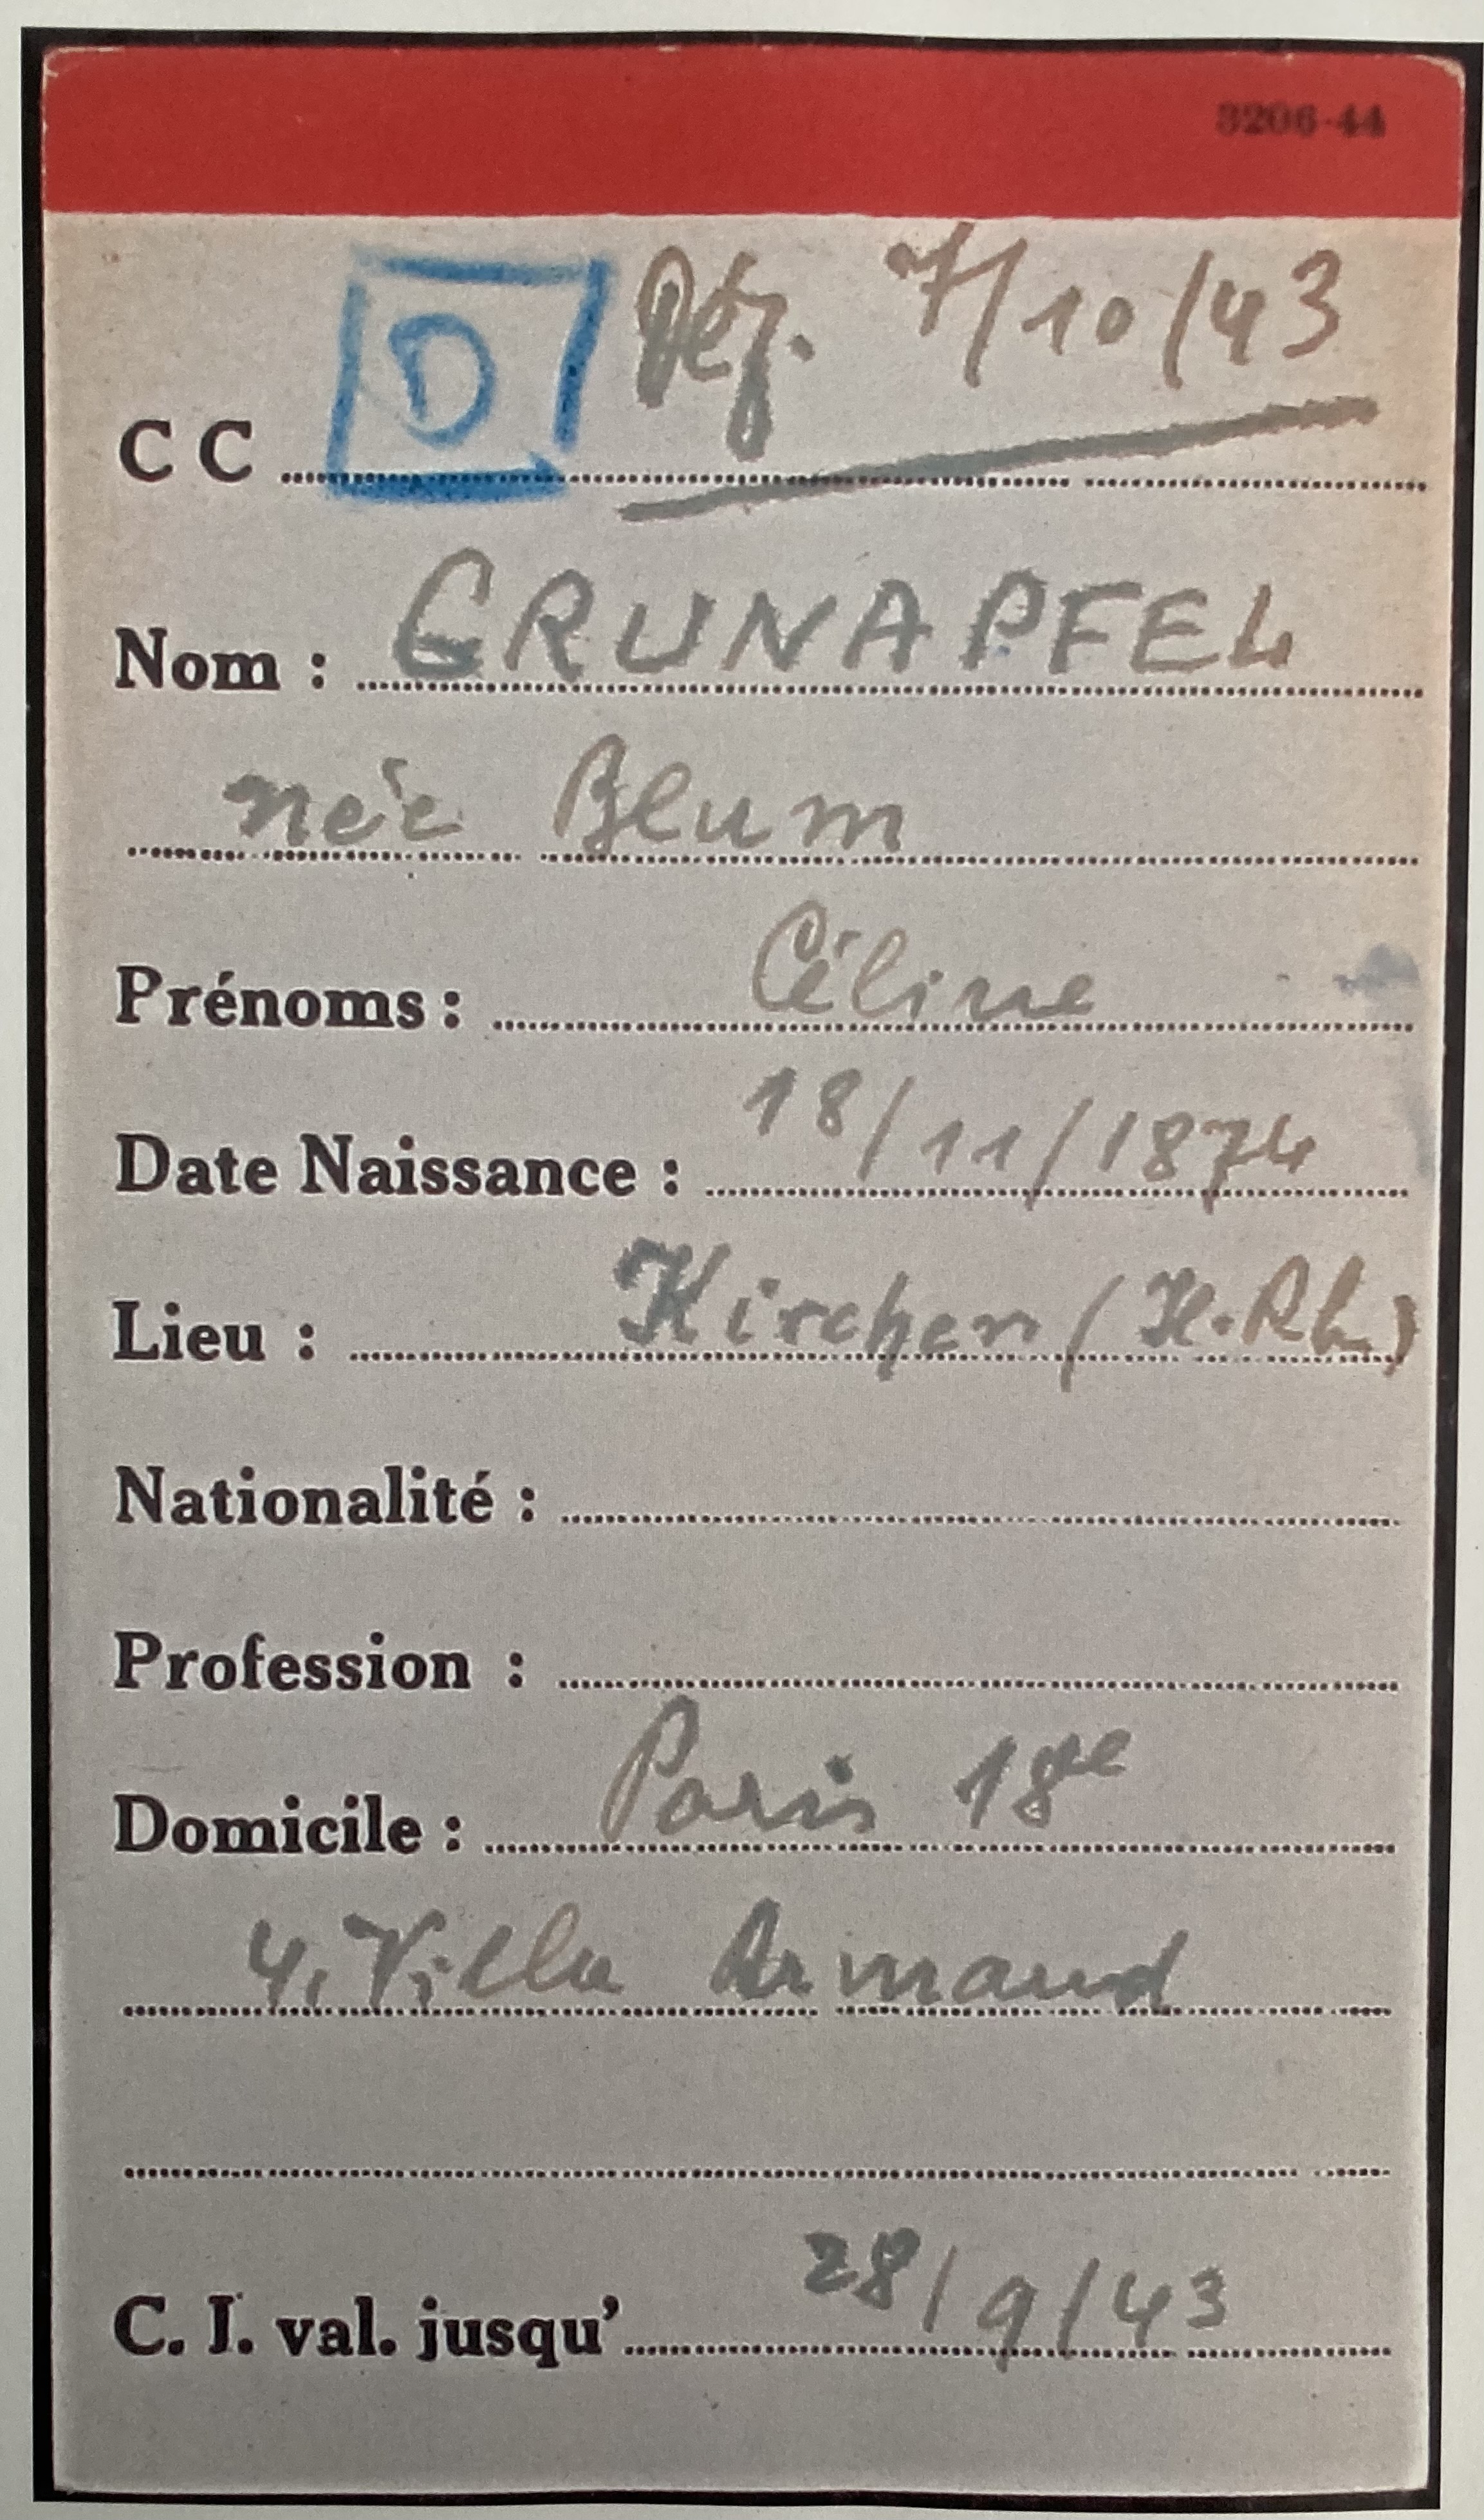 3206-44
D Déf. 7/10/43
C C
Nom : GRUNAPFEL
née Blum
Prénoms : Céline
Date Naissance : 18/11/1874
Lieu : Kirchen (H.Rh)
Nationalité :
Profession :
Domicile : Paris 18e
4, Villa Armand
C. I. val. jusqu' 28/9/43